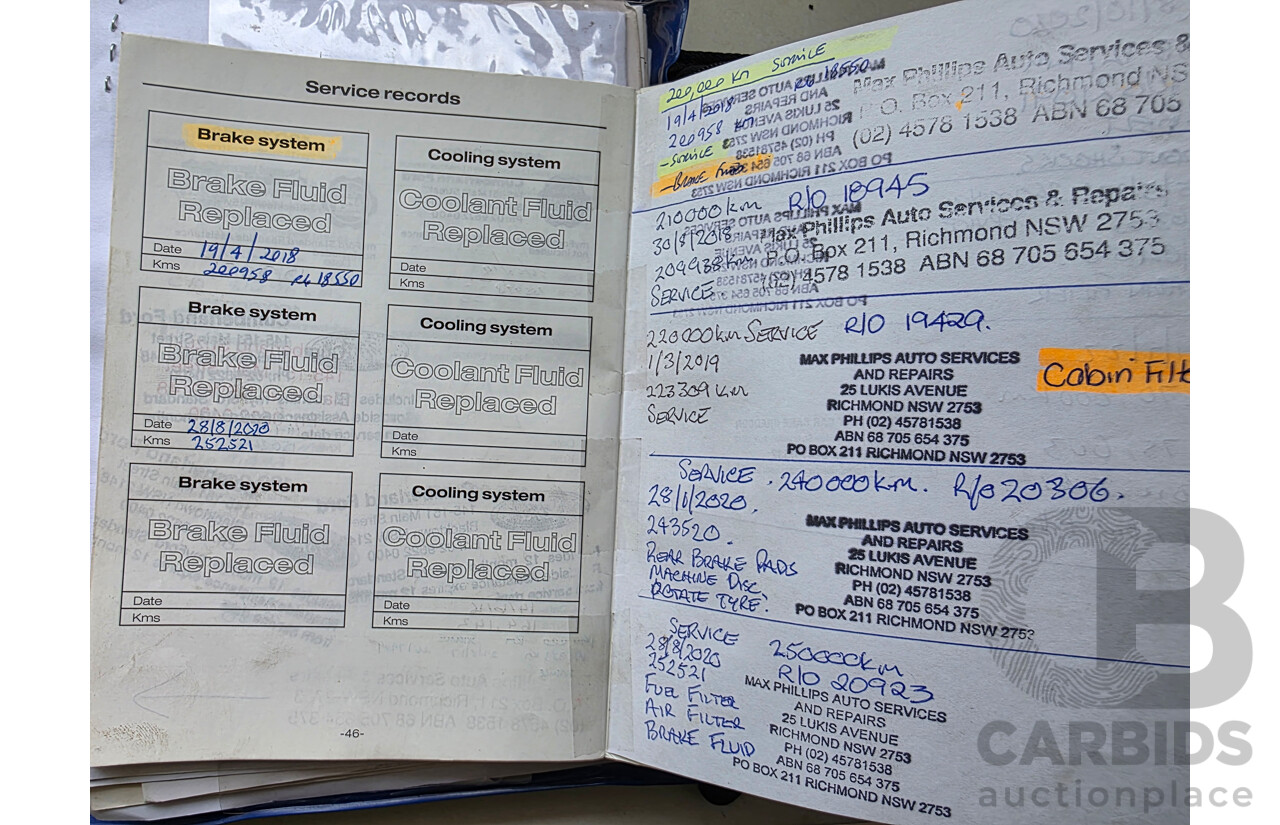 Service records
Brake system
Brake Fluid
Replaced
Date 19/4/2018
Kms 200958 R/o 18550
Cooling system
Coolant Fluid
Replaced
Date
Kms
Brake system
Brake Fluid
Replaced
Date 28/8/2020
Kms 252521
Cooling system
Coolant Fluid
Replaced
Date
Kms
Brake system
Brake Fluid
Replaced
Date
Kms
Cooling system
Coolant Fluid
Replaced
Date
Kms
-46-
200,000 Km SERVICE
19/4/2018 R/o 18550
200958 Km
- SERVICE
- BRAKE FLUID
Max Phillips Auto Services &
P.O. Box 211, Richmond NS
(02) 4578 1538 ABN 68 705
210000km R/O 18945
30/8/2018
209938km
SERVICE
Max Phillips Auto Services & Repairs
P.O. Box 211, Richmond NSW 2753
(02) 4578 1538 ABN 68 705 654 375
220000km SERVICE R/O 19429.
1/3/2019
223309 km
SERVICE
MAX PHILLIPS AUTO SERVICES
AND REPAIRS
25 LUKIS AVENUE
RICHMOND NSW 2753
PH (02) 45781538
ABN 68 705 654 375
PO BOX 211 RICHMOND NSW 2753
Cabin Filt
SERVICE . 240000km. R/o 20306.
28/1/2020.
243520.
REAR BRAKE PADS
MACHINE DISC
ROTATE TYRE?
MAX PHILLIPS AUTO SERVICES
AND REPAIRS
25 LUKIS AVENUE
RICHMOND NSW 2753
PH (02) 45781538
ABN 68 705 654 375
PO BOX 211 RICHMOND NSW 2753
SERVICE 250000km
28/8/2020 R/O 20923
252521
FUEL FILTER
AIR FILTER
BRAKE FLUID
MAX PHILLIPS AUTO SERVICES
AND REPAIRS
25 LUKIS AVENUE
RICHMOND NSW 2753
PH (02) 45781538
ABN 68 705 654 375
PO BOX 211 RICHMOND NSW 2753
CB
CARBIDS
auctionplace